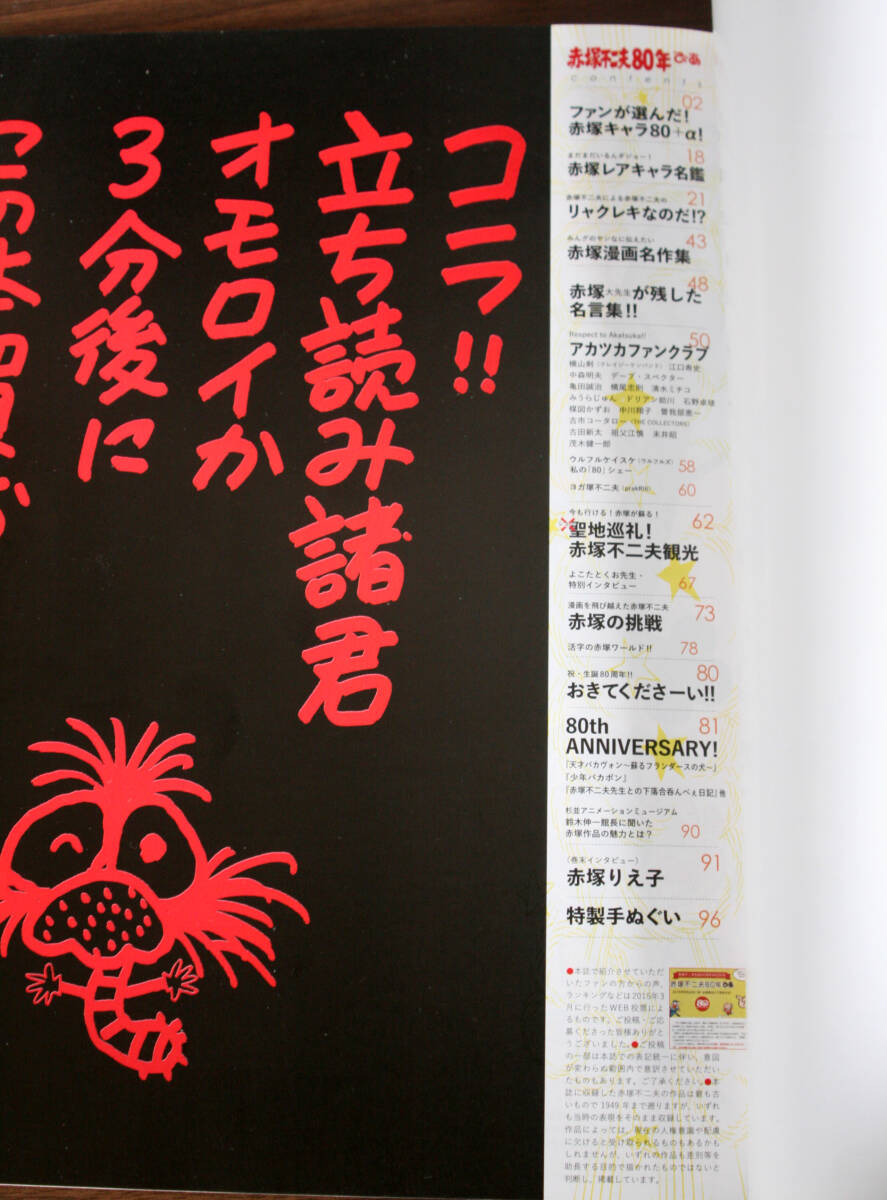 コラ!!
立ち読み諸君
オモロイか
3分後に
赤塚不二夫80年ぴあ
contents
02
ファンが選んだ!
赤塚キャラ80+α!
まだまだいるんダジョー!
18
赤塚レアキャラ名鑑
赤塚不二夫による赤塚不二夫の
21
リャクレキなのだ!?
43
赤塚漫画名作集
48
赤塚大先生が残した
名言集!!
Respect to Akatsuka!!
50
アカツカファンクラブ
横山剣(クレイジーケンバンド) 江口寿史
中森明夫 デーブ・スペクター
亀田誠治 横尾忠則 清水ミチコ
みうらじゅん ドリアン助川 石野卓球
楳図かずお 中川翔子 曽我部恵一
古市コータロー(THE COLLECTORS)
古田新太 祖父江慎 末井昭
茂木健一郎
ウルフルケイスケ(ウルフルズ)
私の「80」シェー 58
ヨガ塚不二夫 60
今も行ける!赤塚が蘇る! 62
聖地巡礼!
赤塚不二夫観光
よこたとくお先生・
特別インタビュー 67
漫画を飛び越えた赤塚不二夫 73
赤塚の挑戦
活字の赤塚ワールド!! 78
祝・生誕80周年!! 80
おきてくださーい!!
80th 81
ANNIVERSARY!
『天才バカヴォン〜蘇るフランダースの犬〜』
『少年バカボン』
『赤塚不二夫先生との下落合呑んべぇ日記』他
杉並アニメーションミュージアム
鈴木伸一館長に聞いた
赤塚作品の魅力とは? 90
(巻末インタビュー) 91
赤塚りえ子
特製手ぬぐい 96
●本誌で紹介させていただ
いたファンの方からの声、
ランキングなどは2015年3
月に行ったWEB投票によ
るものです。ご投稿・ご応
募くださった皆様ありがと
うございました。●ご投稿
の一部は本誌での表記統一に伴い、意図
が変わらぬ範囲内で意訳させていただい
たものもあります。ご了承ください。●本
誌に収録した赤塚不二夫の作品は最も古
いもので1949年まで遡りますが、いずれ
も当時の表現をそのまま収録しています。
作品によっては、現在の人権意識や配慮
に欠けると受け取られるものもあるかも
しれませんが、いずれの作品も差別等を
助長する目的で描かれたものではないと
判断し、掲載しています。
赤塚不二夫80年ぴあ